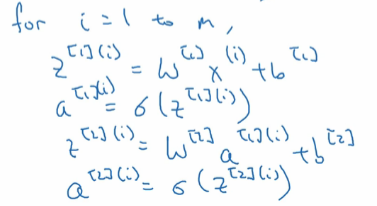 for i=1 to m,
z^[1](i) = W^[1] x^(i) + b^[1]
a^[1](i) = σ(z^[1](i))
z^[2](i) = W^[2] a^[1](i) + b^[2]
a^[2](i) = σ(z^[2](i))